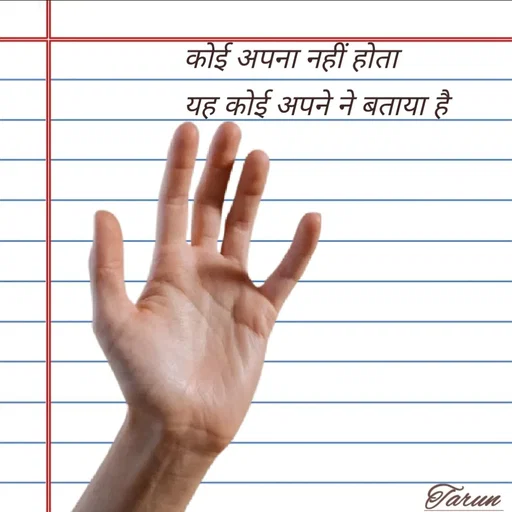 कोई अपना नहीं होता
यह कोई अपने ने बताया है
Tarun